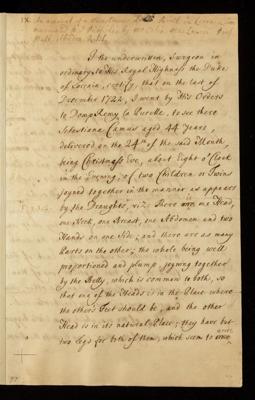 IX. An account of a Monstrous
I the underwritten, Surgeon in
ordinary to His Royal Highness the Duke
of Lorrain, certify, that on the last of
December 1722, I went by His Orders
to Domp Remy la Pucelle, to see there
Sebastiana Camus aged 44 Years,
delivered on the 24th of the said Month,
being Christmass Eve, about Eight o'Clock
in the Evening, of two Children or Twins
joyned together in the manner as appears
by the Draught, viz. There was one Head,
one Neck, one Breast, one Abdomen and two
Hands on one Side, and there are as many
Parts on the other; the whole being well
proportioned and plump joyning together
by the Belly, which is common to both, so
that one of the Heads is in the Place where
the others Feet should be, and the other
Head is in its natural Place; they have but
two Legs for both of them, which seem to